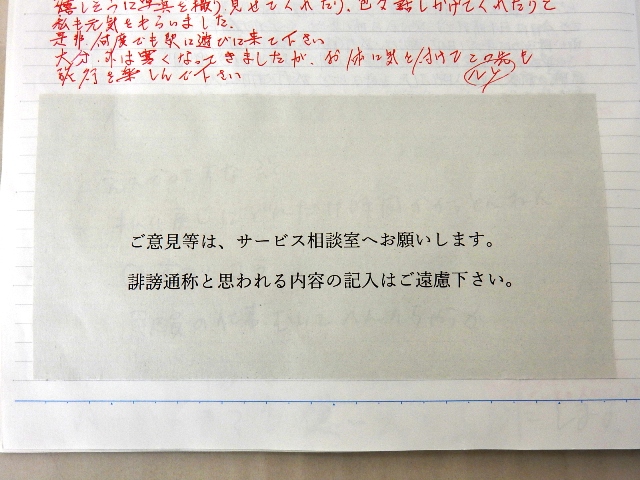 嬉しそうに洋具を撮り見せてくれたり、色々話しかけてくれたりと
私も元気をもらいました。
是非、何度でも駅に遊びに来て下さい
大分、外は寒くなってきましたが、お体に気を付けてこの先も
旅行を楽しんで下さい
ご意見等は、サービス相談室へお願いします。
誹謗通称と思われる内容の記入はご遠慮下さい。